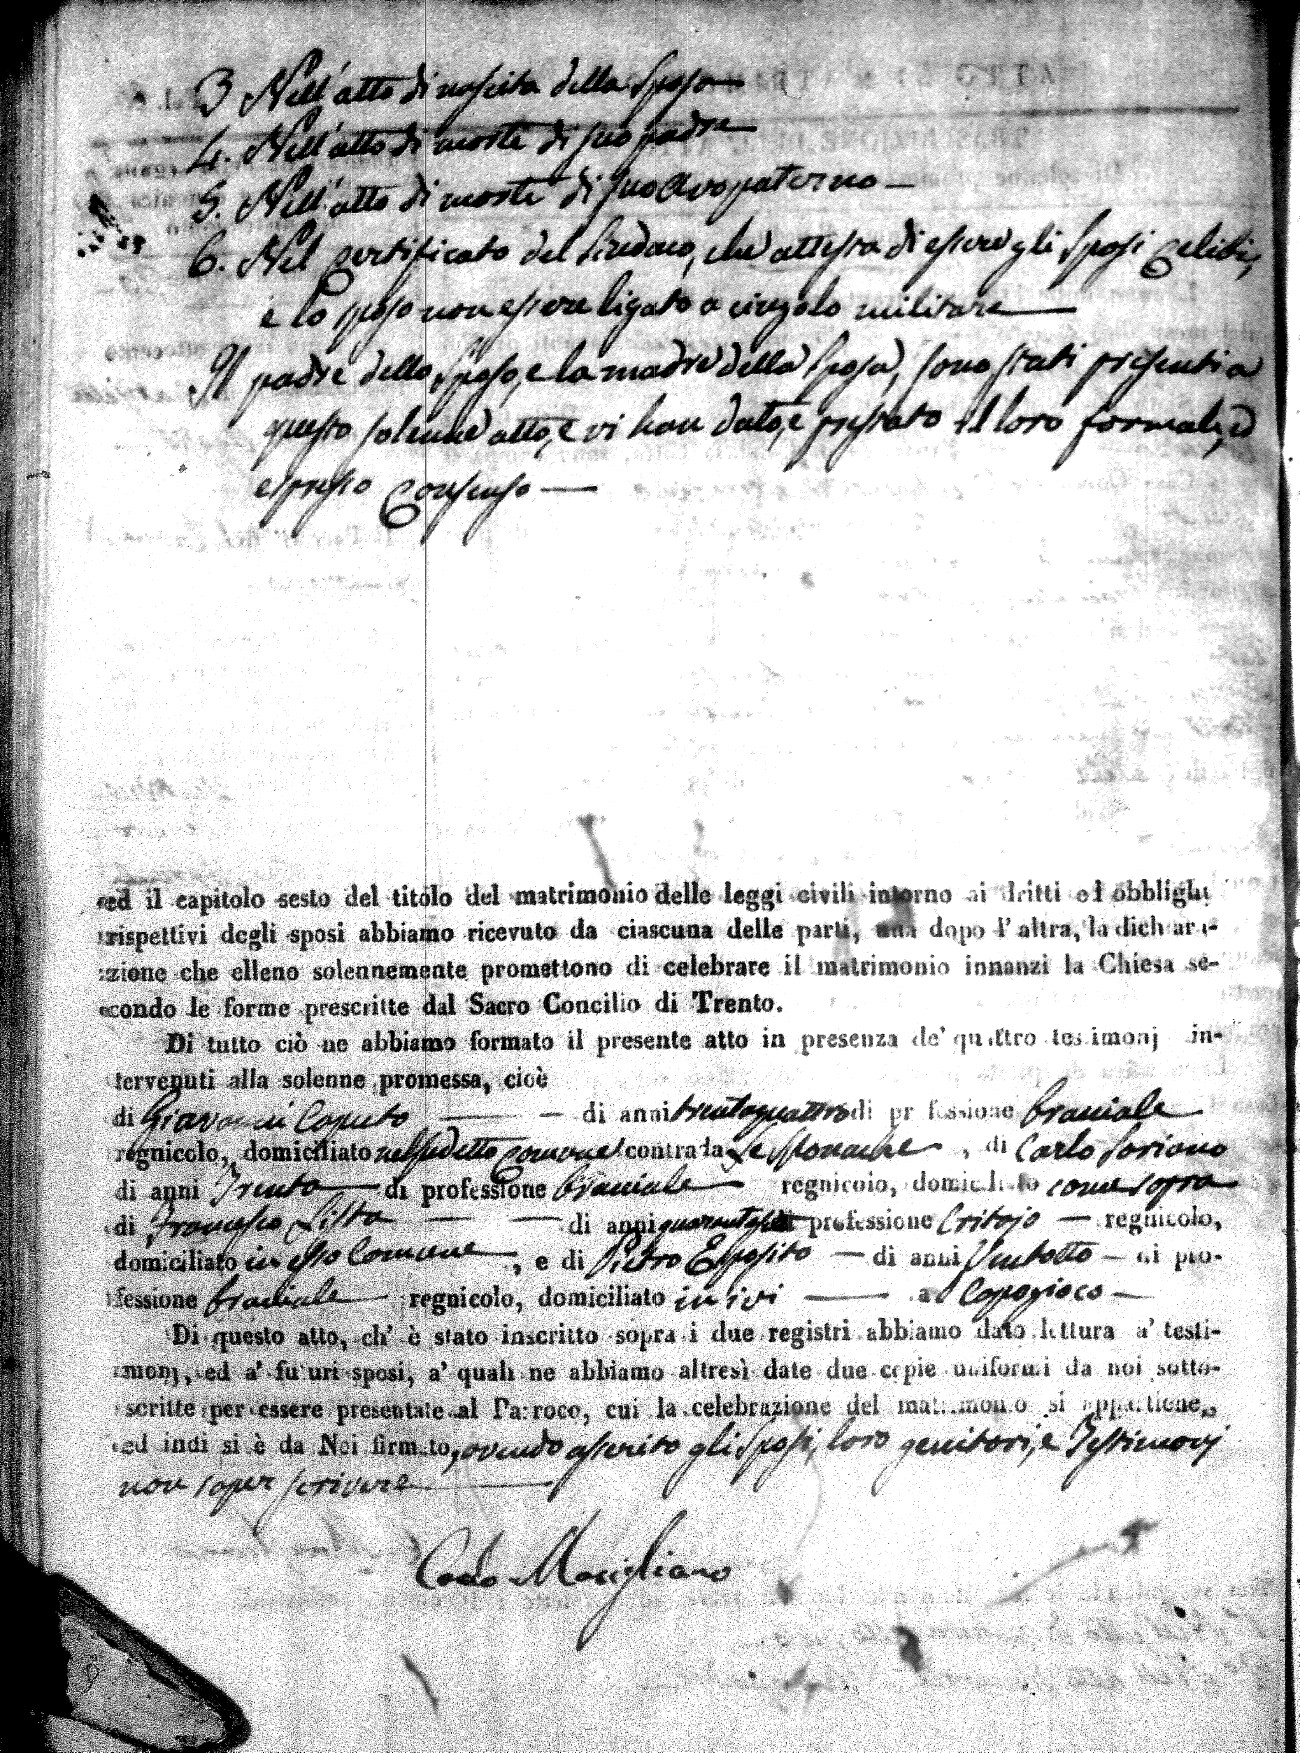 3 Nell'atto di nascita della Sposa
4. Nell'atto di morte di suo padre
5. Nell'atto di morte di suo avo paterno
6. Nel certificato del Sindaco, che attesta di essere gli Sposi celibi,
e lo sposo non essere ligato a vingolo militare
Il padre dello Sposo, e la madre della Sposa, sono stati presenti a
questo solenne atto, e vi han dato, e prestato il loro formale, ed
espresso Consenso
ed il capitolo sesto del titolo del matrimonio delle leggi civili intorno ai dritti ed obblighi
rispettivi degli sposi abbiamo ricevuto da ciascuna delle parti, una dopo l'altra, la dichiara-
zione che elleno solennemente promettono di celebrare il matrimonio innanzi la Chiesa se-
condo le forme prescritte dal Sacro Concilio di Trento.
Di tutto ciò ne abbiamo formato il presente atto in presenza de' quattro testimonj in-
tervenuti alla solenne promessa, cioè
di Giovanni Caputo di anni trentaquattro di professione braciale
regnicolo, domiciliato nel sudetto Comune contrada , di Carlo Soriano
di anni Trenta di professione braciale regnicolo, domiciliato come sopra
di Francesco Lista di anni professione regnicolo,
domiciliato in esso Comune, e di Pietro Esposito di anni Ventotto di pro-
fessione braciale regnicolo, domiciliato in ivi a Capogioco
Di questo atto, ch' è stato inscritto sopra i due registri abbiamo dato lettura a' testi-
monj, ed a' futuri sposi, a' quali ne abbiamo altresì date due copie uniformi da noi sotto-
scritte per essere presentate al Parroco, cui la celebrazione del matrimonio si appartiene,
ed indi si è da Noi firmato, avendo asserito gli Sposi, loro genitori, e Testimonj
non saper scrivere